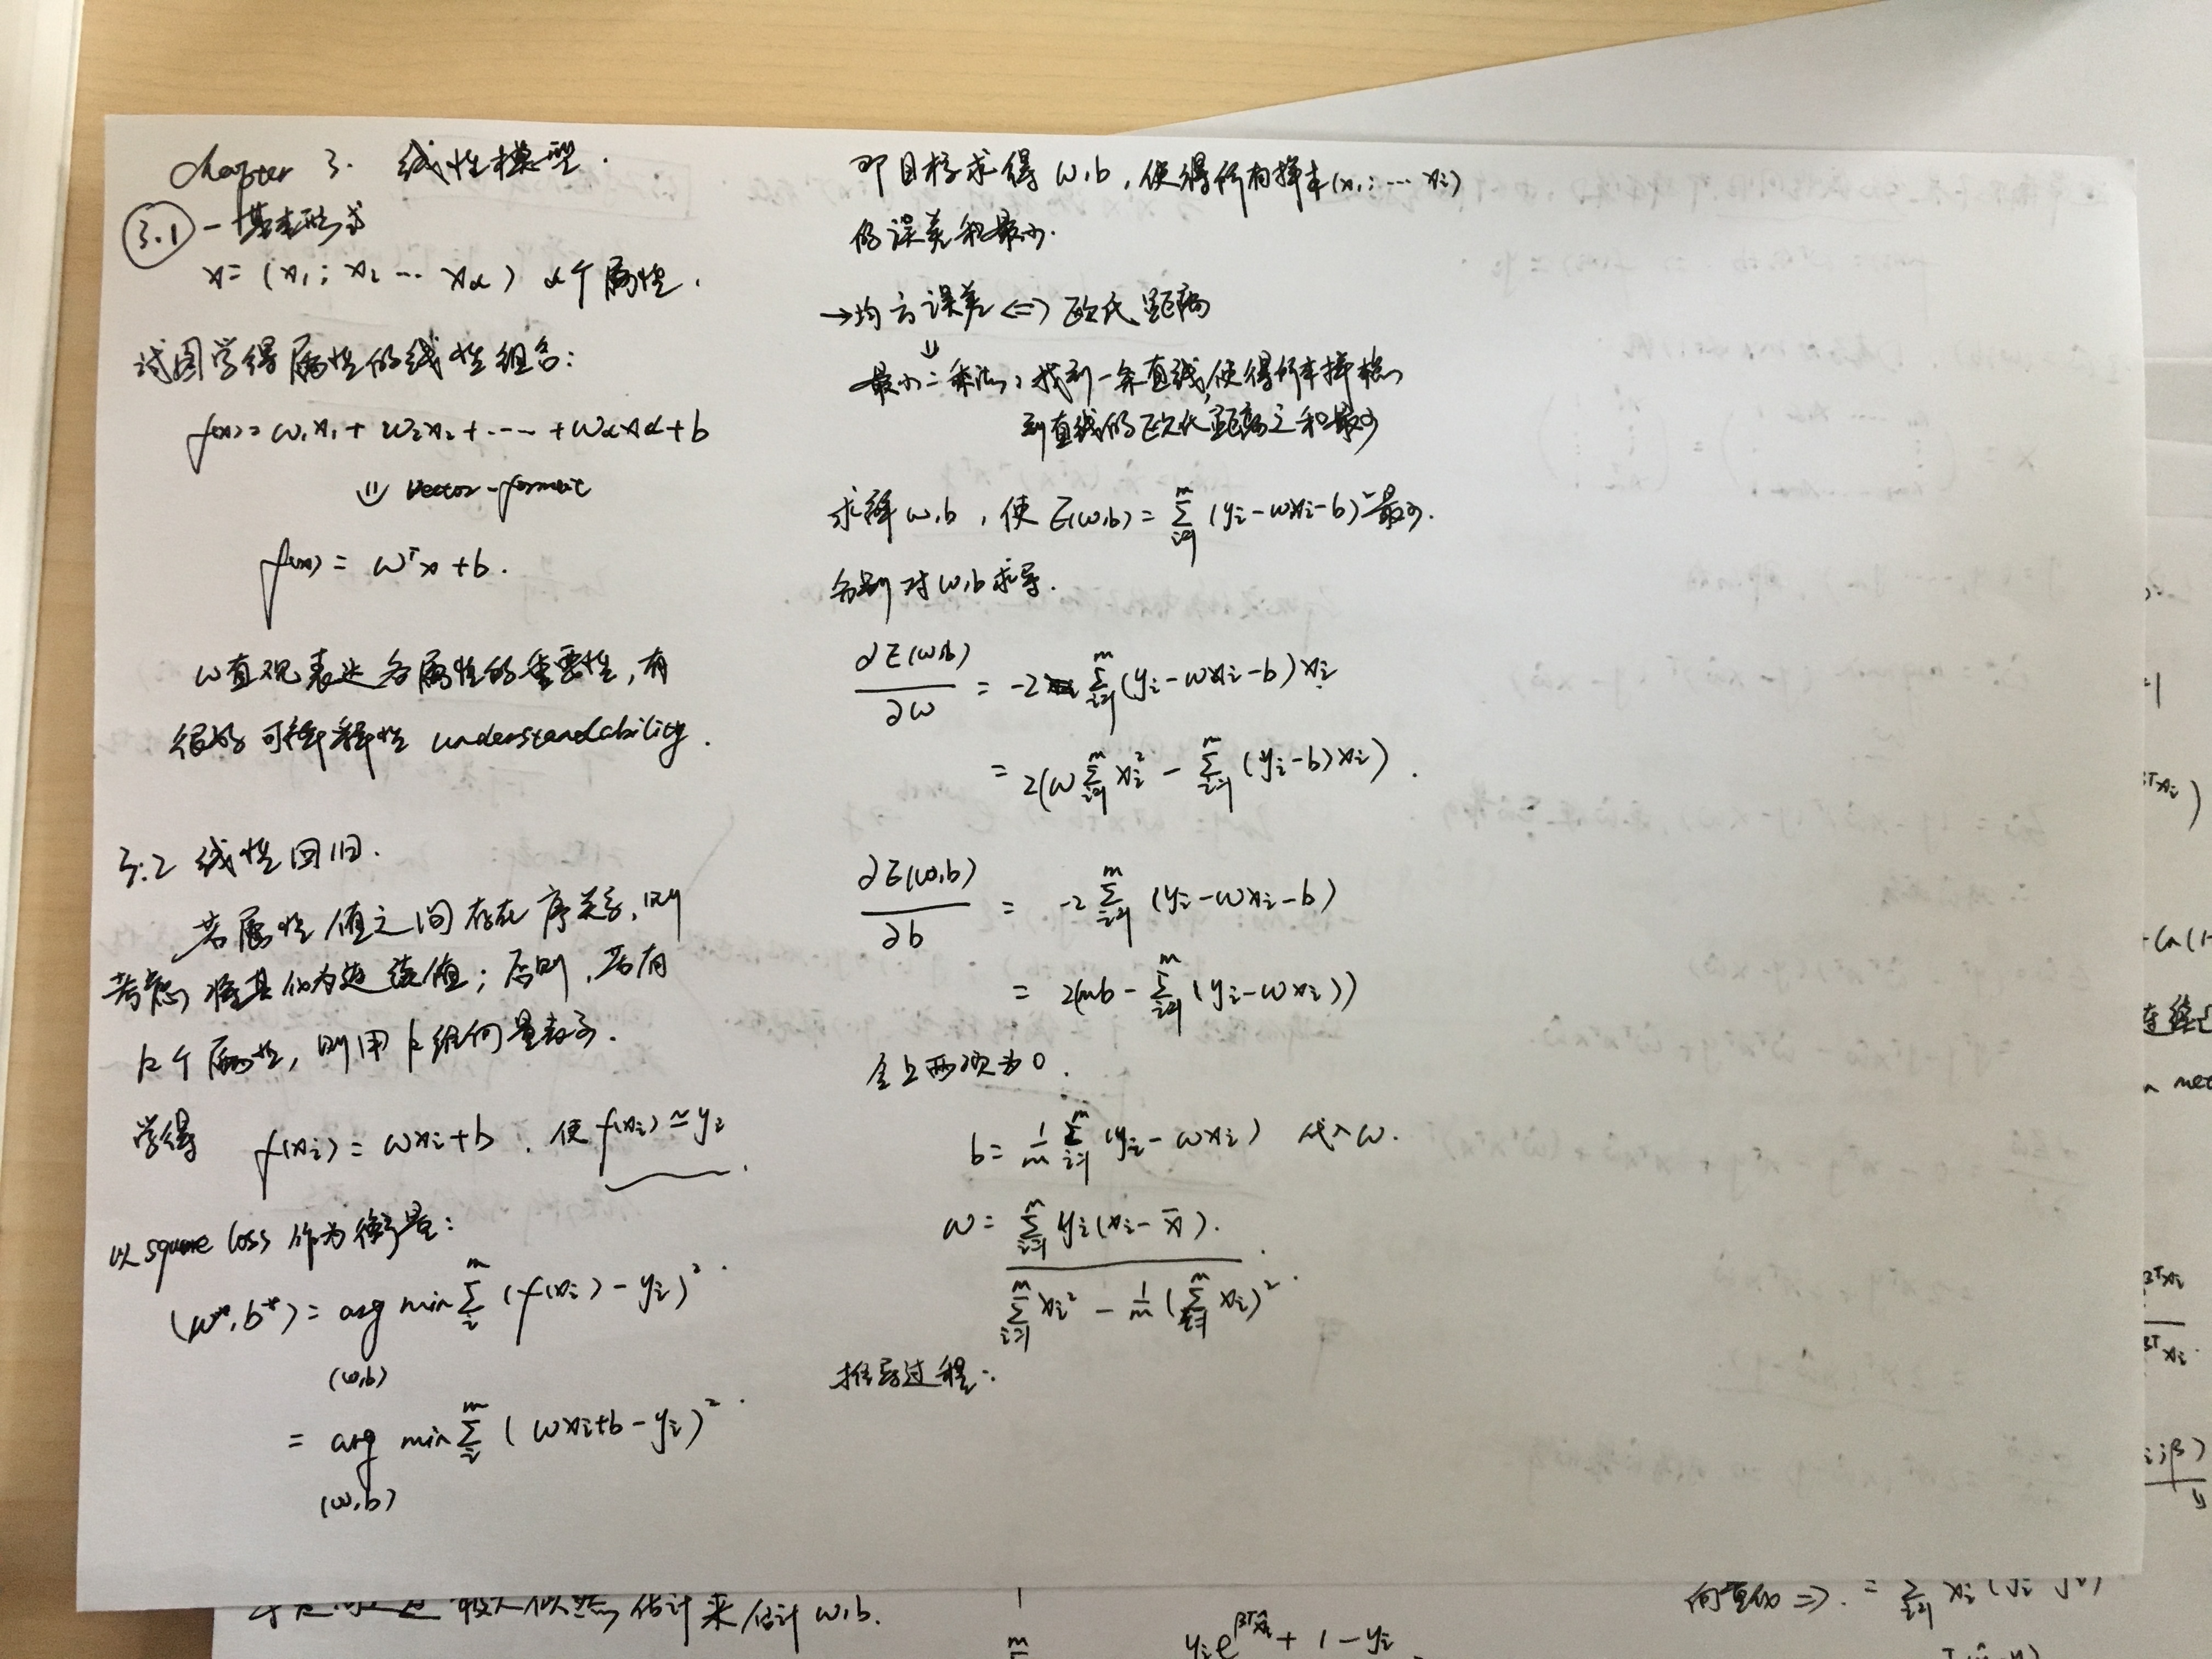 Chapter 3. 线性模型.
3.1 一基本形式
x = (x₁; x₂ ... xd) d个属性.
试图学得属性的线性组合:
f(x) = w₁x₁ + w₂x₂ + ... + wdxd + b
⇓ vector-format
f(x) = wᵀx + b.
w直观表达各属性的重要性, 有
很好可解释性 understandability.
3.2 线性回归.
若属性值之间存在序关系, 则
考虑将其化为连续值; 否则, 若有
k个属性, 则用k维向量表示.
学得 f(xi) = wxi + b. 使 f(xi) ≃ yi.
以 square loss 作为衡量:
(w*, b*) = arg min Σ (f(xi) - yi)².
(w,b)
= arg min Σ (wxi + b - yi)².
(w,b)
即目标求得 w,b, 使得所有样本(x₁; ... xi)
的误差和最小.
→均方误差 <=> 欧氏距离
最小二乘法: 找到一条直线, 使得所有样本
到直线的欧氏距离之和最小
求解 w,b, 使 E(w,b) = Σ (yi - wxi - b)² 最小.
分别对 w,b 求导.
∂E(w,b)/∂w = -2 Σ (yi - wxi - b) xi
= 2(w Σ xi² - Σ (yi - b) xi).
∂E(w,b)/∂b = -2 Σ (yi - wxi - b)
= 2(mb - Σ (yi - wxi))
令上两式为0.
b = 1/m Σ (yi - wxi) 代入w.
w = Σ yi (xi - x̄) / Σ xi² - 1/m (Σ xi)².
推导过程:
估计来估计 w,b.